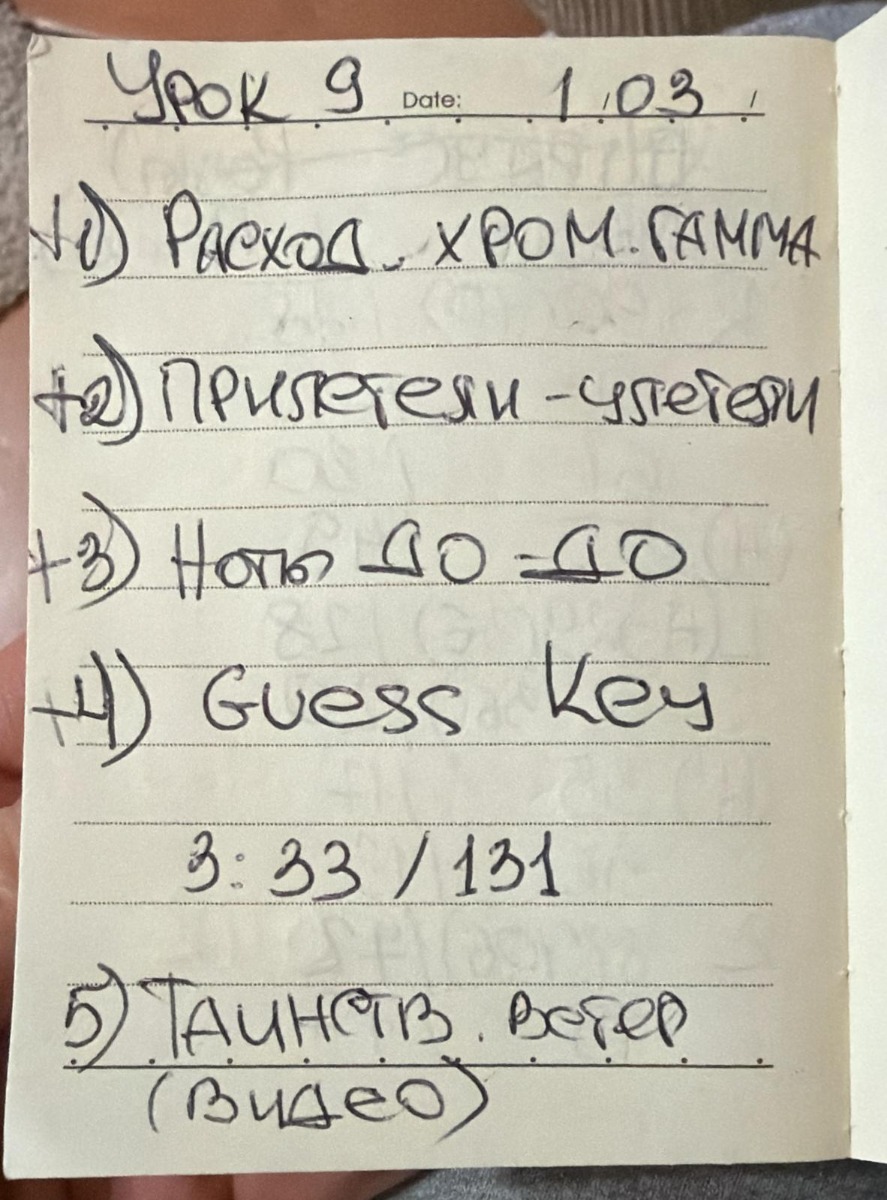 Урок 9 Date: 1 / 03 /
+1) Расход. хром. гамма
+2) Прилетели - улетели
+3) Ноты до - до
+4) Guess Key
3:33 / 131
5) Таинств. ветер
(видео)